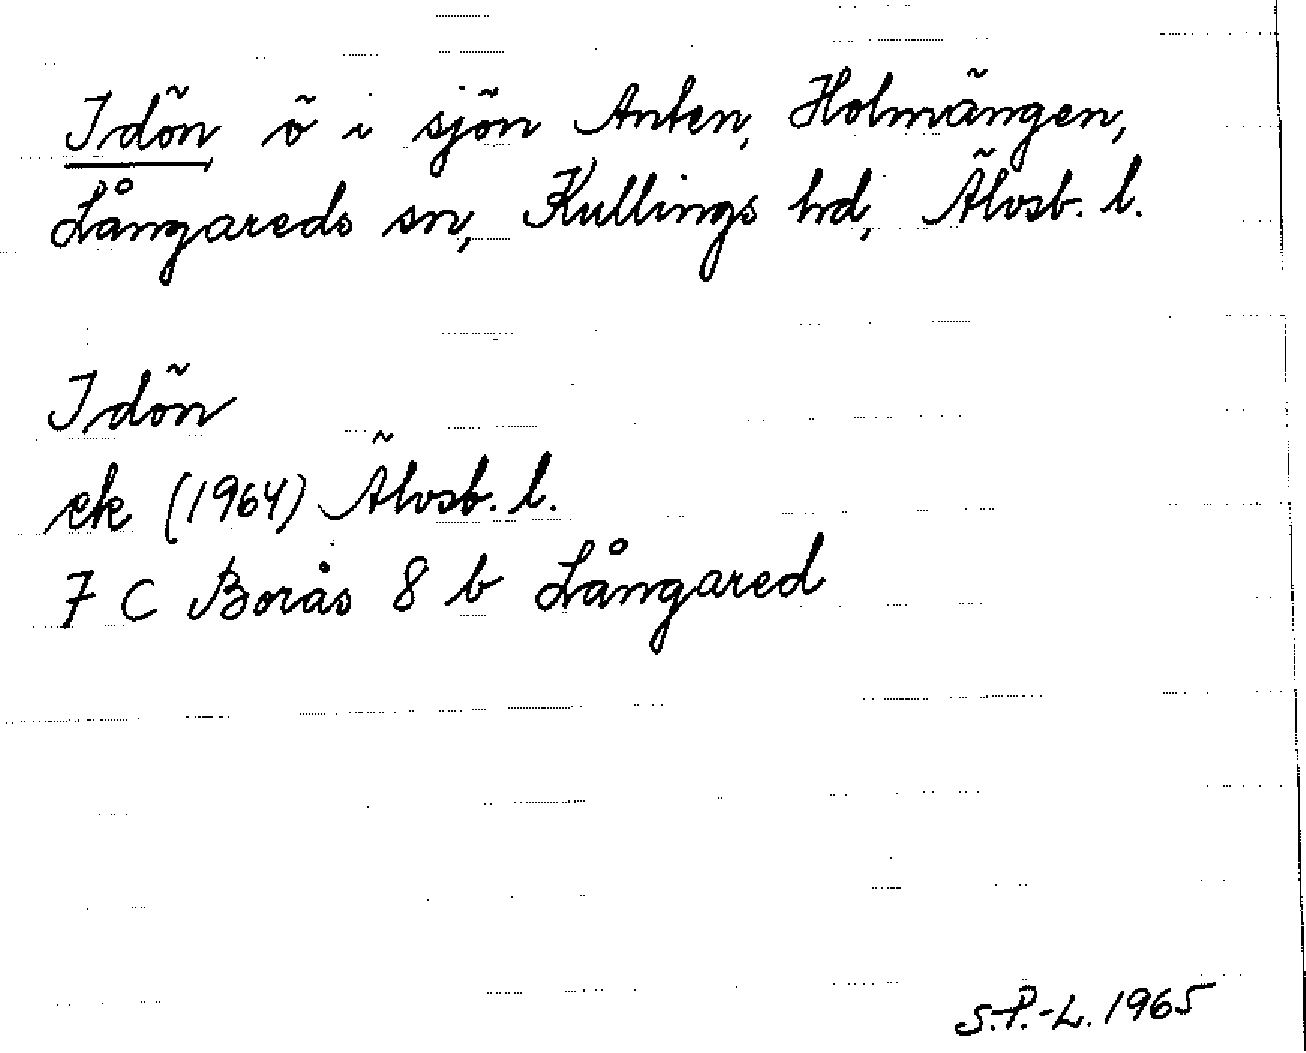 Idön ö i sjön Anten, Holmängen,
Långareds sn, Kullings hd, Älvsb. l.
Idön
ek (1964) Älvsb. l.
7 C Borås 8 b Långared
S.P.-L. 1965